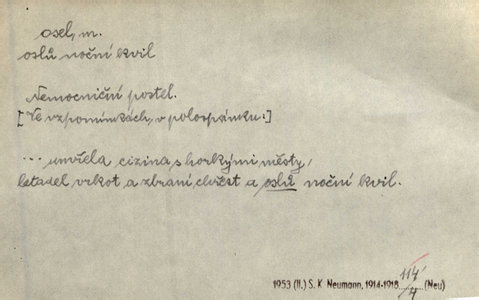 osel, m.
oslů noční kvil
Nemocniční postel.
[Ve vzpomínkách, v polospánku:]
... umřela cizina s horkými městy,
letadel vrkot a zbraní chřest a oslů noční kvil.
1953 (II.) S. K. Neumann, 1914-1918 114/7 (Neu)